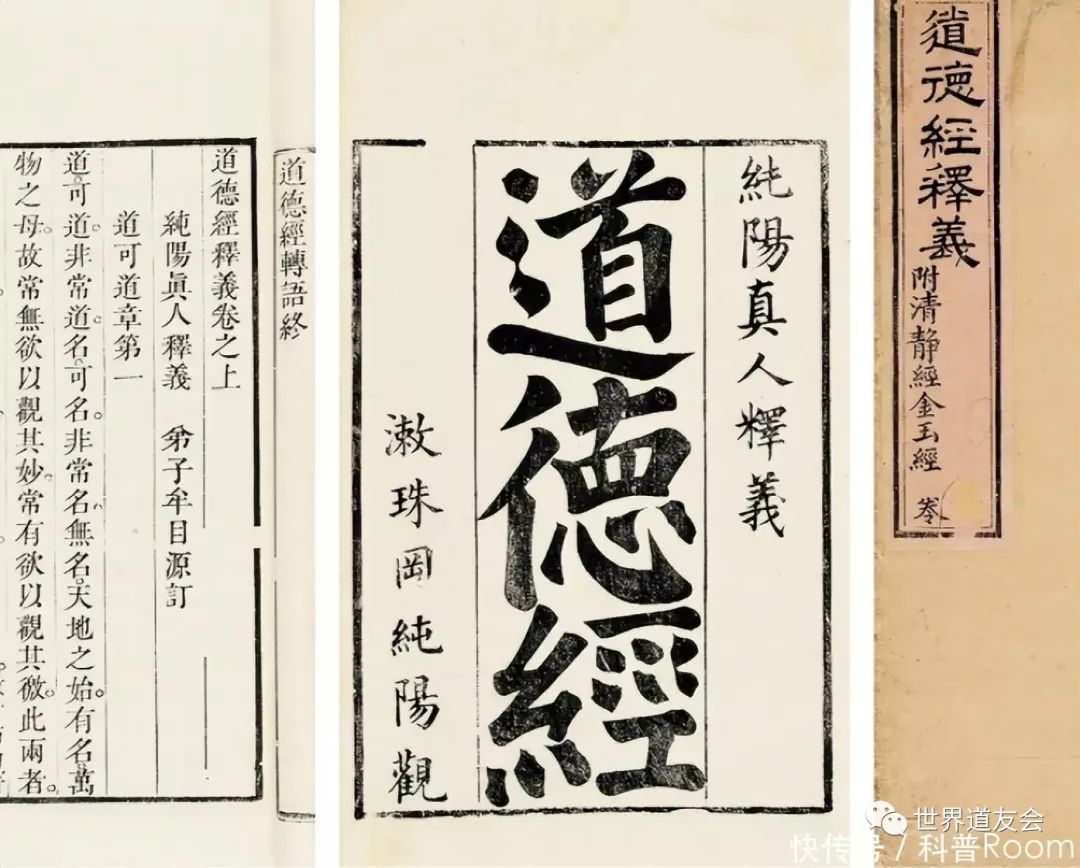 道德經釋義
附清靜經金玉經
純陽真人釋義
道德經
漱珠岡純陽觀
道德經轉語終
道德經釋義卷之上
純陽眞人釋義 弟子牟目源訂
道可道章第一
道可道。非常道。名可名。非常名。無名。天地之始。有名。萬
物之母。故常無欲以觀其妙。常有欲以觀其徼。此兩者。
世界道友会
快传号 / 科普Room